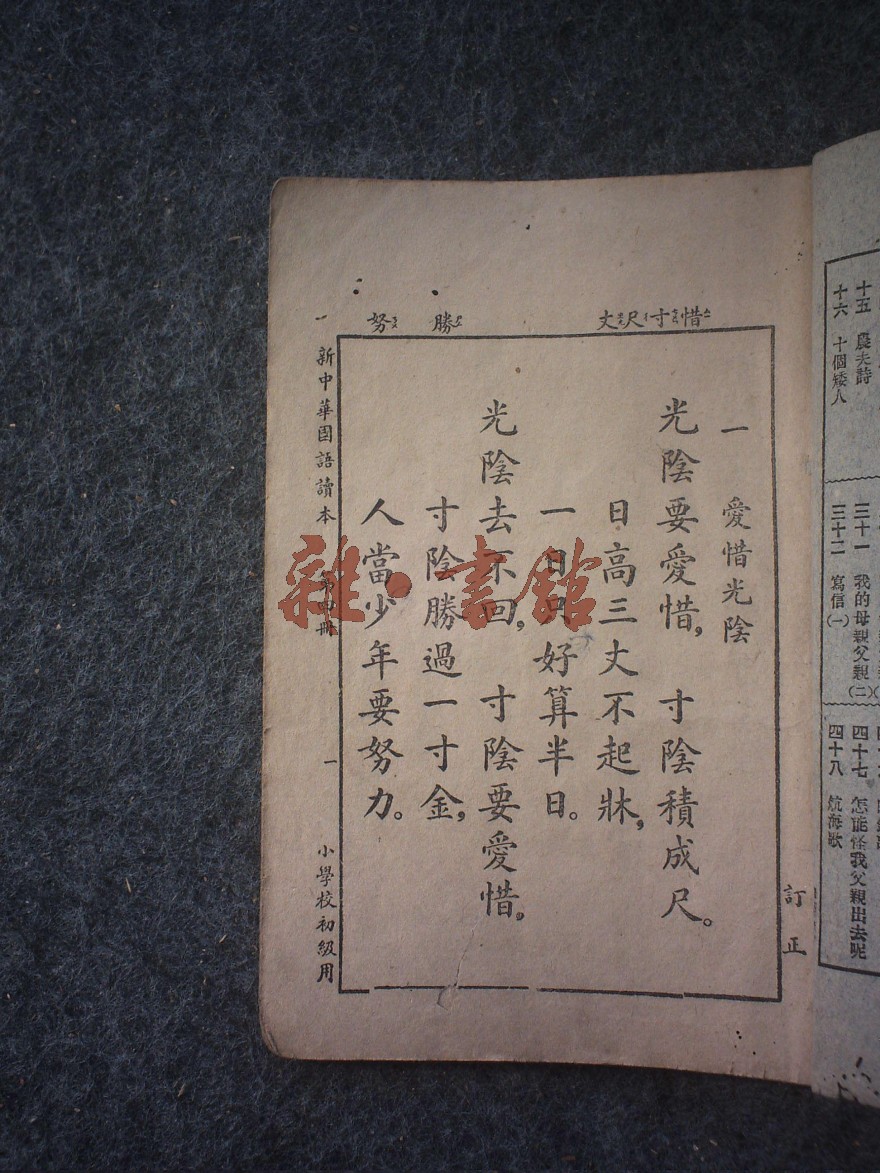 十五 農夫詩
十六 十個矮人
三十一 我的母親父親(二)
三十二 寫信(一)
四十七 怎能怪我父親出去呢
四十八 航海歌
訂正
惜寸尺丈 勝 努 一
一 愛惜光陰
光陰要愛惜,寸陰積成尺。
日高三丈不起牀,
一日只好算半日。
光陰去不回,寸陰要愛惜。
寸陰勝過一寸金,
人當少年要努力。
新中華國語讀本 第四冊 一 小學校初級用
雜·書館